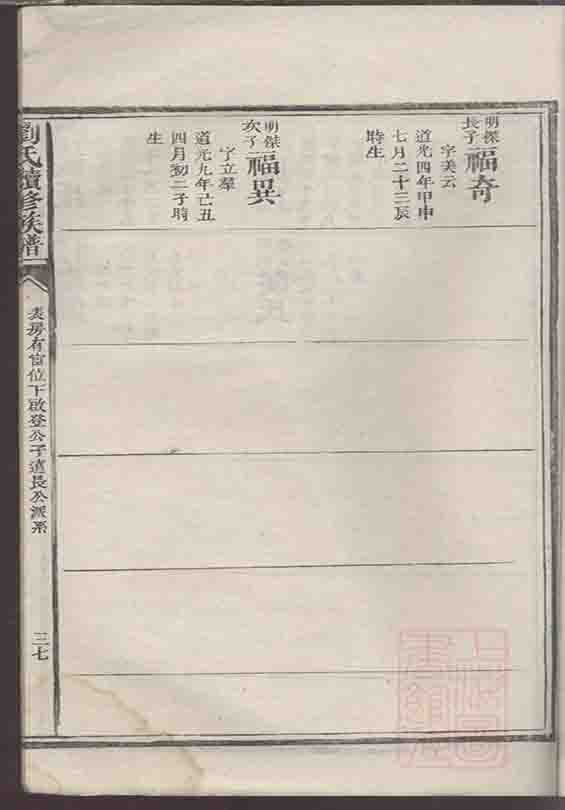 明傑
長子
福奇
字美云
道光四年甲申
七月二十三辰
時生
明傑
次子
福異
字立羣
道光九年己丑
四月初二子時
生
劉氏續修族譜
表房有富位下啟登公子遠長公派系
三七
上海圖
書館藏